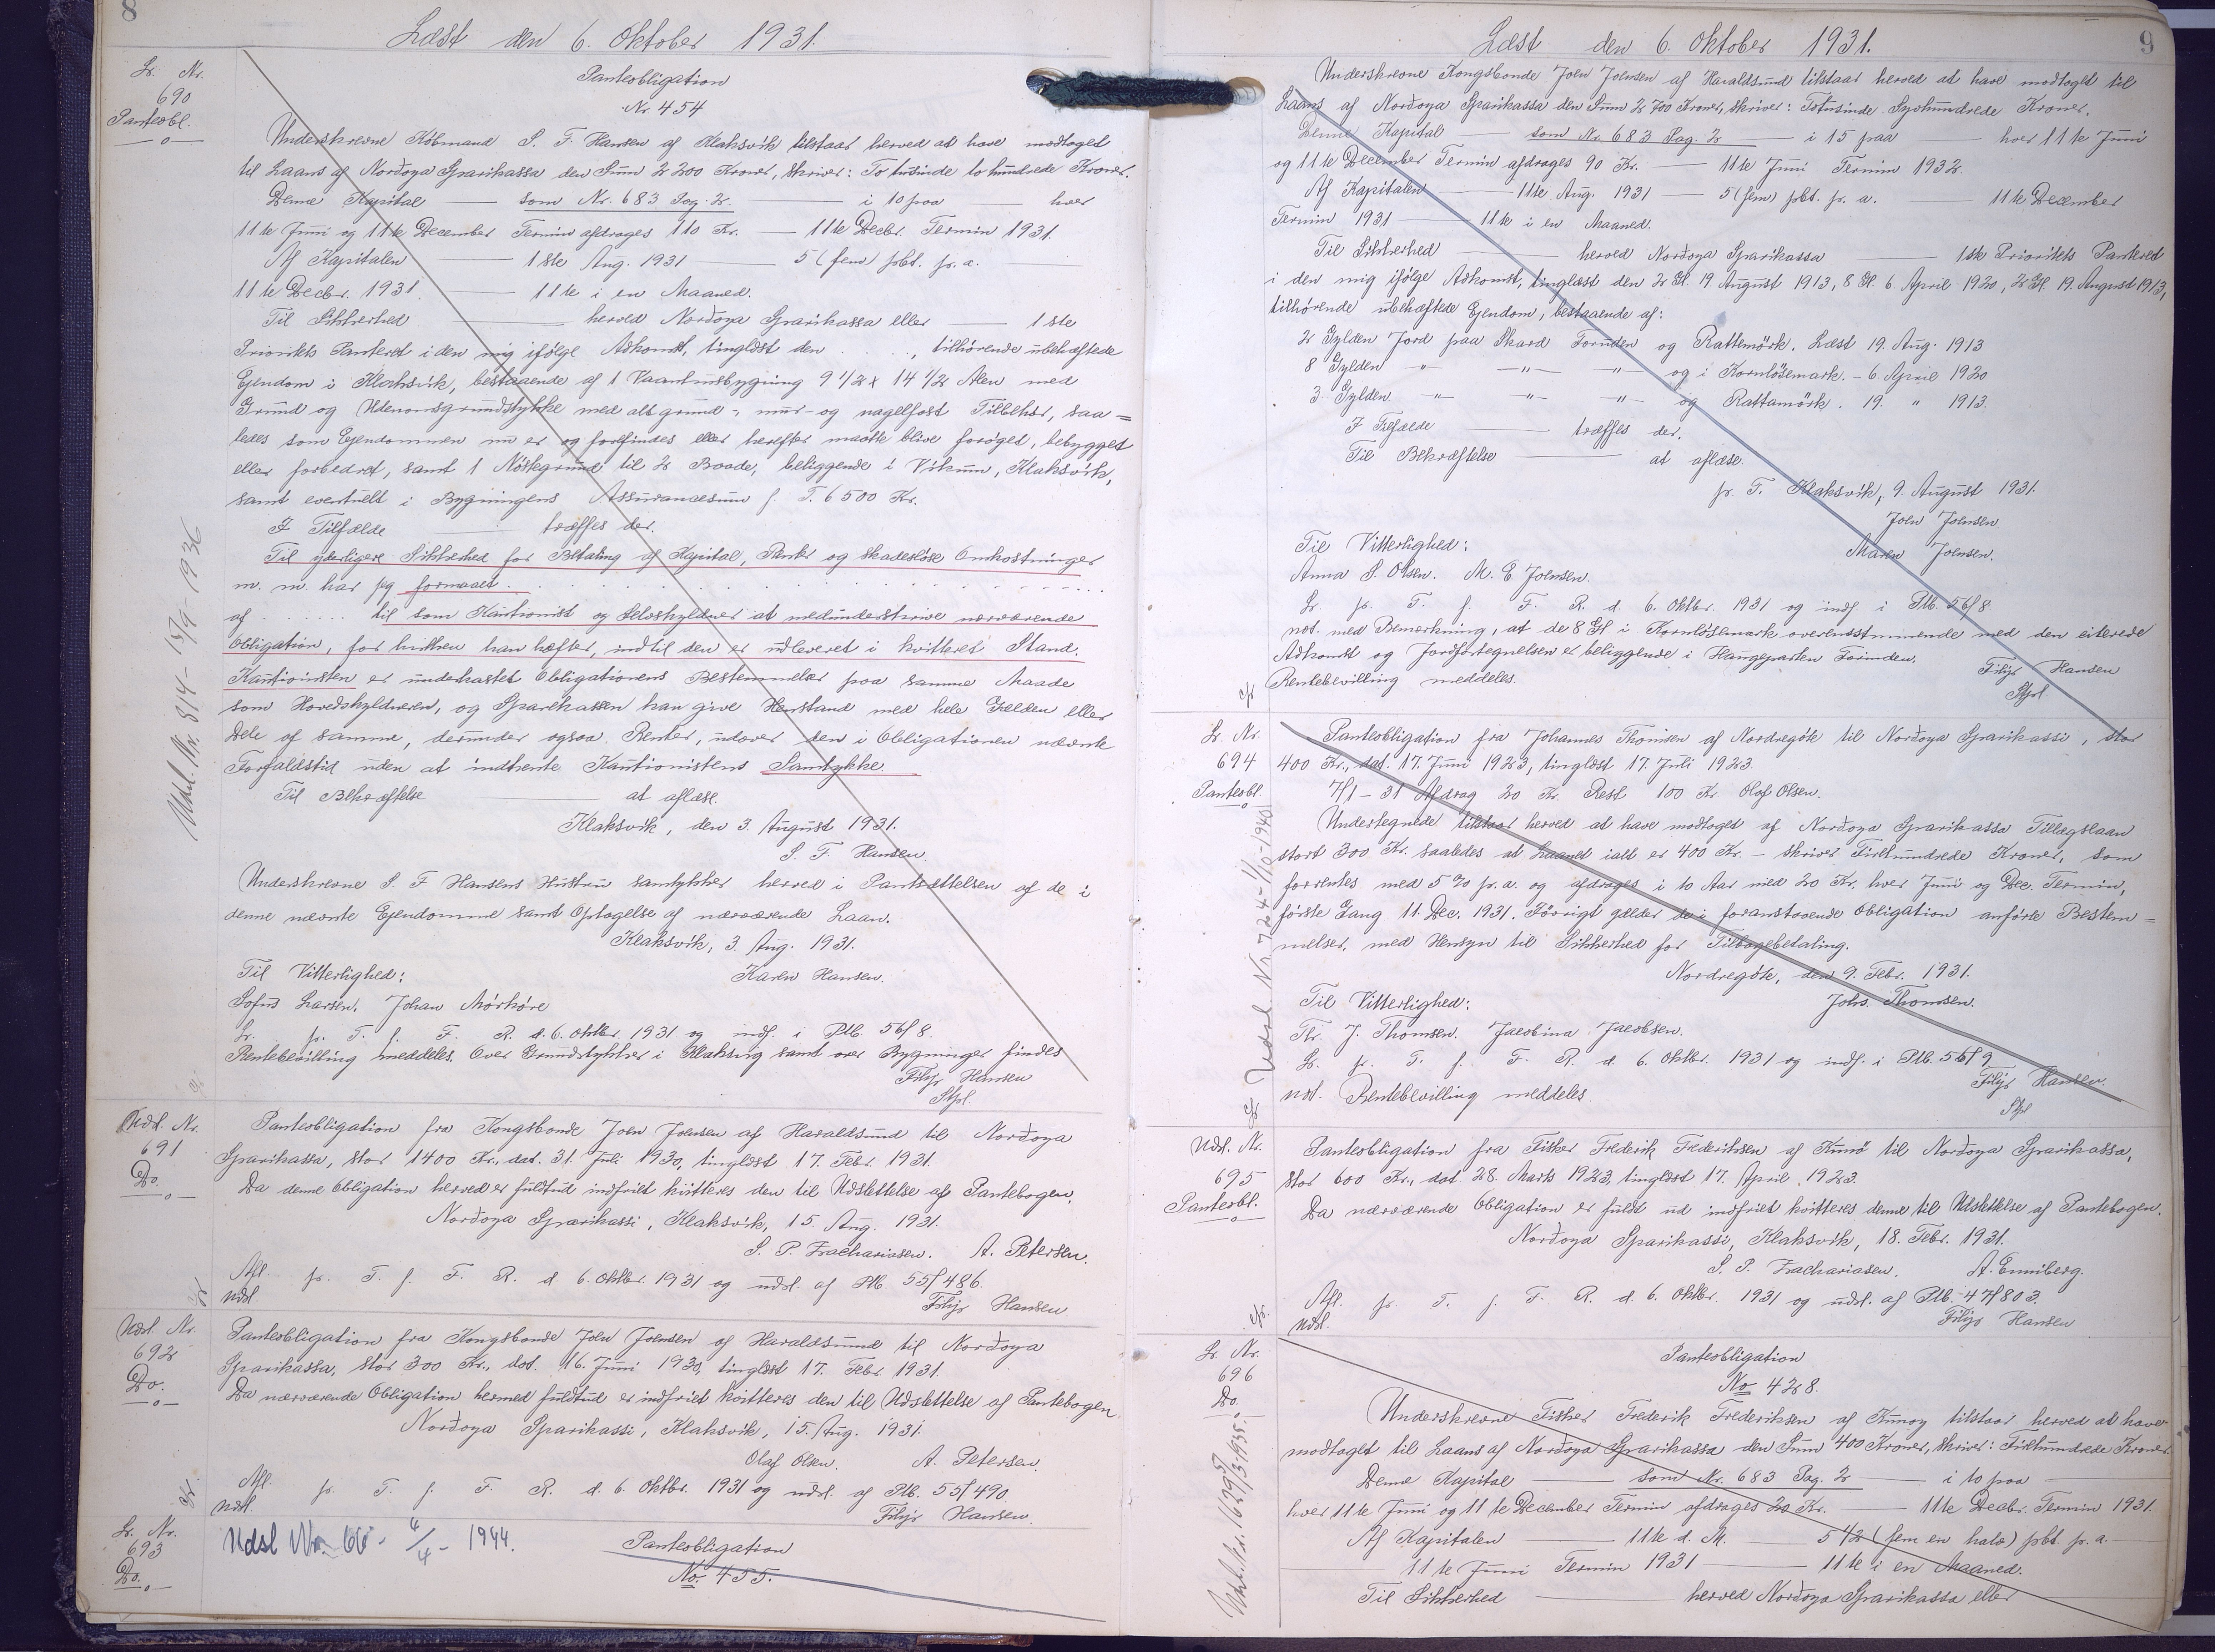 8
Læst den 6. Oktober 1931.
Lr. Nr.
690
Panteobl.
Panteobligation
Nr. 454
Underskrevne Købmand S. F. Hansen af Klaksvik tilstaar herved at have modtaget
til Laans af Norðoya Sparikassa den Sum 2 200 Kroner, skriver: To tusinde to hundrede Kroner.
Denne Kapital — som Nr. 683 Pag. 2. — i 10 paa — hver
11te Juni og 11te December Termin afdrages 110 Kr. — 11te Decbr. Termin 1931.
Af Kapitalen — 1ste Aug. 1931 — 5 (fem) pbt. p. a.
11te Decbr. 1931 — 11te i en Maaned.
Til Sikkerhed — herved Norðoya Sparikassa eller — 1ste
Prioritets Panteret i den mig ifølge Adkomst, tinglæst den . . . ., tilhørende ubehæftede
Ejendom i Klaksvik, bestaaende af 1 Vaaningsbygning 9 1/2 x 14 1/2 Alen med
Grund og Udenomsgrundstykke med alt grund-, mur- og nagelfast Tilbehør, saa=
ledes som Ejendommen nu er og forefindes eller herefter maatte blive forøget, bebygget
eller forbedret, samt 1 Nøstegrund til 2 Baade, beliggende i Vikum, Klaksvik,
samt eventuelt i Bygningens Assurancesum f. T. 6500 Kr.
I Tilfælde træffes der.
Til yderligere Sikkerhed for Betaling af Kapital, Renter og skadesløse Omkostninger
m. m. har jeg formaaet . . . . . .
af . . . . . . til som Kautionist og Selvskyldner at medunderskrive nærværende
Obligation, for hvilken han hæfter, indtil den er udleveret i kvitteret Stand.
Kautionisten er underkastet Obligationens Bestemmelser paa samme Maade
som Hovedskyldneren, og Sparekassen kan give Henstand med hele Gælden eller
Dele af samme, derunder ogsaa Renter, udover den i Obligationen nævnte
Forfaldstid uden at indhente Kautionistens Samtykke.
Til Bekræftelse — at aflæse.
Klaksvik, den 3. August 1931.
S. F. Hansen.
Underskrevne S. F. Hansens Hustru samtykker herved i Pantsættelsen af de i
denne nævnte Ejendomme samt Optagelse af nærværende Laan.
Klaksvik, 3. Aug. 1931.
Til Vitterlighed: Karen Hansen.
Sofus Larsen. Johan Mørkøre
Lr. p. T. f. F. R. d. 6. Oktbr. 1931 og indf. i Ptb. 56/8.
Rentebevilling meddeles. Over Grundstykker i Klaksvig samt over Bygninger findes
Filip Hansen
Stpl.
Udsl. Nr. 814 - 15/9 1936
Udsl. Nr.
691
Do.
Panteobligation fra Kongsbonde Joen Joensen af Haraldsund til Norðoya
Sparikassa, stor 1400 Kr., dat. 31. Juli 1930, tinglæst 17. Febr. 1931.
Da denne Obligation herved er fuldtud indfriet kvitteres den til Udslettelse af Pantebogen.
Norðoya Sparikassi, Klaksvik, 15. Aug. 1931.
S. P. Zachariasen. A. Petersen.
Afl. p. T. f. F. R. d. 6. Oktbr. 1931 og udsl. af Ptb. 55/486.
Udsl.
Filip Hansen
Udsl. Nr.
692
Do.
Panteobligation fra Kongsbonde Joen Joensen af Haraldsund til Norðoya
Sparikassa, stor 300 Kr., dat. 16. Juni 1930, tinglæst 17. Febr. 1931.
Da nærværende Obligation hermed fuldtud er indfriet kvitteres den til Udslettelse af Pantebogen.
Norðoya Sparikassi, Klaksvik, 15. Aug. 1931.
Olaf Olsen. A. Petersen.
Afl. p. T. f. F. R. d. 6. Oktbr. 1931 og udsl. af Ptb. 55/490.
Udsl.
Filip Hansen.
Lr. Nr.
693
Do.
Udsl Nr. 66 - 4/4 - 1944.
Panteobligation
No. 455.
9
Læst den 6. Oktober 1931.
Underskrevne Kongsbonde Joen Joensen af Haraldsund tilstaar herved at have modtaget til
Laans af Norðoya Sparikassa den Sum 2 700 Kroner, skriver: Totusinde Syvhundrede Kroner.
Denne Kapital — som Nr. 683 Pag. 2 — i 15 paa — hver 11te Juni
og 11te December Termin afdrages 90 Kr. — 11te Juni Termin 1932.
Af Kapitalen — 11te Aug. 1931 — 5 (fem) pbt. p. a. — 11te December
Termin 1931 — 11te i en Maaned.
Til Sikkerhed — herved Norðoya Sparikassa — 1ste Prioritets Panteret
i den mig ifølge Adkomst, tinglæst den 2 Gl. 19 August 1913, 8 Gl. 6. April 1920, 2 Gl. 19. August 1913,
tilhørende ubehæftede Ejendom, bestaaende af:
2 Gylden Jord paa Skard Foruden og Rattemørk. Læst 19. Aug. 1913
8 Gylden -"- -"- -"- og i Kornløsemark. - 6 April 1920
3 Gylden -"- -"- -"- og Rattamørk. 19. " 1913.
I Tilfælde — træffes der.
Til Bekræftelse — at aflæse.
p. T. Klaksvik, 9. August 1931.
Joen Joensen.
Til Vitterlighed: Maren Joensen.
Anna S. Olsen. M. E. Joensen.
Lr. p. T. f. F. R. d. 6. Oktbr. 1931 og indf. i Ptb. 56/8
not. med Bemærkning, at de 8 Gl i Kornløsemark overensstemmende med den citerede
Adkomst og Jordfortegnelsen er beliggende i Haugeparten Forinden.
Rentebevilling meddeles.
Filip Hansen
Stpl.
Lr. Nr.
694
Panteobl.
Panteobligation fra Johannes Thomsen af Nordregøte til Norðoya Sparikassi, stor
400 Kr., dat. 17. Juni 1923, tinglæst 17. Juli 1923.
7/1 - 31 Afdrag 20 Kr. Rest 100 Kr. Olaf Olsen.
Undertegnede tilstaar herved at have modtaget af Norðoya Sparikassa Tillægslaan
stort 300 Kr. saaledes at Laanet ialt er 400 Kr. - skriver Firehundrede Kroner, som
forrentes med 5 % p. a. og afdrages i 10 Aar med 20 Kr. hver Juni og Dec. Termin,
første Gang 11. Dec. 1931. Førrigt gælder de i foranstaaende Obligation anførte Bestem=
melser, med Hensyn til Sikkerhed for Tilbagebetaling.
Nordregøte, den 9. Febr. 1931.
Til Vitterlighed: Johs. Thomsen.
Thr. J. Thomsen. Jacobina Jacobsen.
Lr. p. T. f. F. R. d. 6. Oktbr. 1931 og indf. i Ptb. 56/9
not. Rentebevilling meddeles.
Filip Hansen.
Stpl
Udsl. Nr. 724 - 1/10 - 1940
Udsl. Nr.
695
Panteobl.
Panteobligation fra Fisker Frederik Frederiksen af Kunø til Norðoya Sparikassa,
stor 600 Kr., dat 28. Marts 1923, tinglæst 17. April 1923.
Da nærværende Obligation er fuldt ud indfriet kvitteres denne til Udslettelse af Pantebogen.
Norðoya Sparikassi, Klaksvik, 18. Febr. 1931.
S. P. Zachariasen. A. Enniberg.
Afl. p. T. f. F. R. d. 6. Oktbr. 1931 og udsl. af Ptb. 47/803.
Udsl.
Filip Hansen
Lr. Nr.
696
Do.
Panteobligation
No 428.
Underskrevne Fisker Frederik Frederiksen af Kunoy tilstaar herved at have
modtaget til Laans af Norðoya Sparikassa den Sum 400 Kroner, skriver: Firehundrede Kroner.
Denne Kapital — som Nr. 683 Pag. 2 — i 10 paa —
hver 11te Juni og 11te December Termin afdrages 20 Kr. — 11te Decbr. Termin 1931.
Af Kapitalen — 11te d. M. — 5 1/2 (fem en halv) pbt. p. a.
11te Juni Termin 1931 — 11te i en Maaned.
Til Sikkerhed — herved Norðoya Sparikassa eller